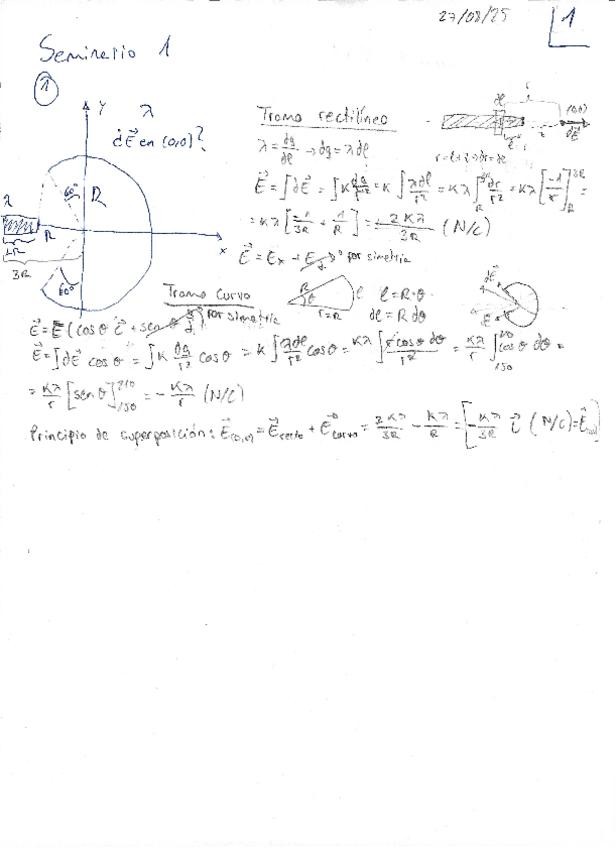 27/08/25
1
Seminario 1
1
Y
λ
¿dE⃗ en (0,0)?
60°
R
λ
R
2R
3R
x
60°
Tramo rectilíneo
λ = dq/dl → dq = λdl
dl
r
(0,0)
dE⃗
E⃗ = ∫dE⃗ = ∫K dq/r² = K ∫ λdl/r² = Kλ ∫_R^3R dr/r² = Kλ [-1/r]_R^3R =
= Kλ [-1/3R + 1/R] = 2Kλ/3R (N/C)
E⃗ = Ex + Ey → 0 por simetría
Tramo curvo
R
θ
l
r=R
l = R·θ
dl = R dθ
dE⃗
E⃗ = E (cosθ i⃗ + senθ j⃗) por simetría
E⃗ = ∫dE⃗ cosθ = ∫K dq/r² cosθ = K ∫ λdl/r² cosθ = Kλ ∫ r cosθ dθ/r² = Kλ/r ∫_150^210 cosθ dθ =
= Kλ/r [senθ]_150^210 = - Kλ/r (N/C)
Principio de superposición: E⃗(0,0) = E⃗recto + E⃗curvo = 2Kλ/3R - Kλ/R = [-Kλ/3R i⃗ (N/C) = E⃗